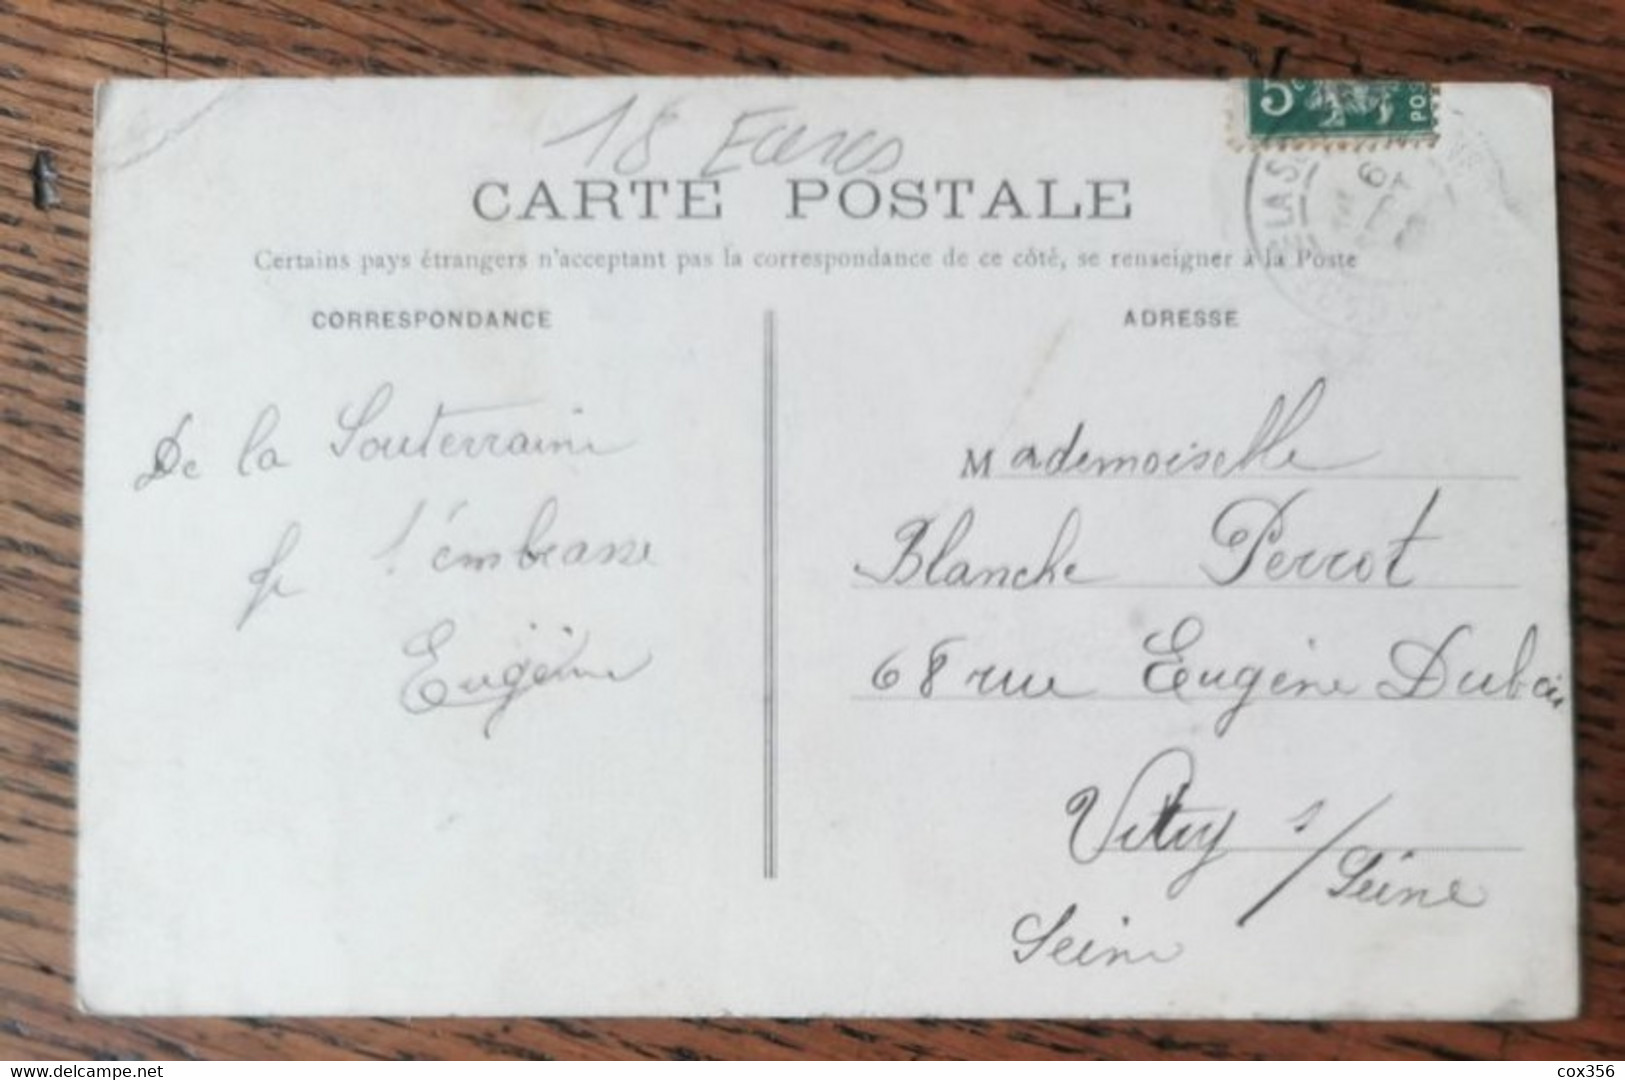 18 Euros
5c
POS
LA S
CARTE POSTALE
Certains pays étrangers n'acceptant pas la correspondance de ce côté, se renseigner à la Poste
CORRESPONDANCE
De la Souterraine
Je t'embrasse
Eugène
ADRESSE
Mademoiselle
Blanche Perrot
68 rue Eugène Dubois
Vitry s/Seine
Seine
delcampe.net
cox356